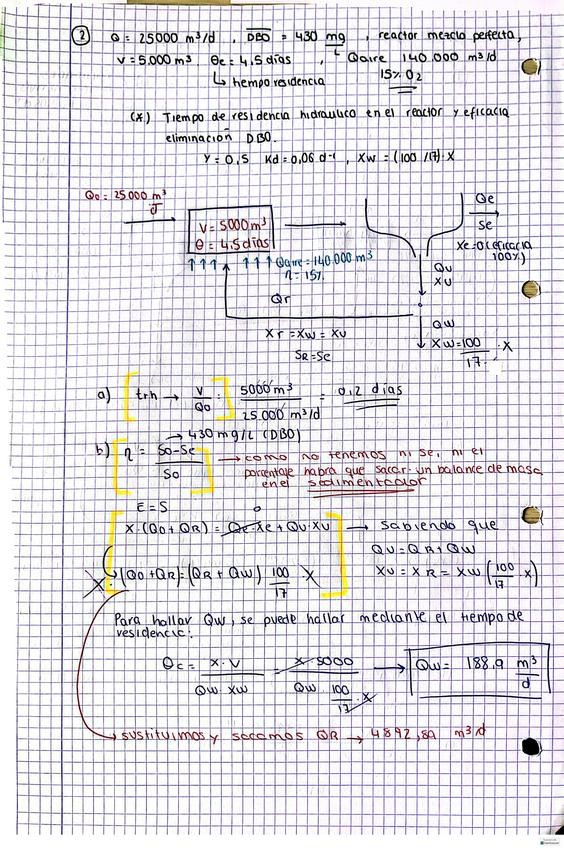 ② Q = 25000 m³/d , DBO = 430 mg/L , reactor mezcla perfecta,
V = 5000 m³. θc = 4,5 días , Qaire 140.000 m³/d
↳ tiempo residencia 15% O2
(*) Tiempo de residencia hidraulico en el reactor y eficacia
eliminación DBO.
Y = 0,5 Kd = 0,06 d⁻¹ , Xw = (100/17)·X
Qo = 25000 m³/d
V = 5000 m³
θ = 4,5 días
Qe
Se
Xe = 0 (eficacia
100%)
↑↑↑ ↑↑↑ Qaire = 140.000 m³
η = 15%
Qu
Xu
Qr
Qw
Xr = Xw = Xu
Xw = 100/17 · X
SR = Se
a) trh → V/Qo = 5000 m³ / 25.000 m³/d = 0,2 días
→ 430 mg/L (DBO)
b) η = So-Se / So → como no tenemos ni Se, ni el
porcentaje habrá que sacar un balance de masa
en el sedimentador
E = S
X·(Qo+QR) = Qe·Xe + Qu·Xu → sabiendo que
0
Qu = QR + Qw
X·(Qo+QR) = (QR + Qw) 100/17 · X
Xu = XR = Xw (100/17 · X)
Para hallar Qw, se puede hallar mediante el tiempo de
residencia:
θc = X·V / Qw·Xw = X·5000 / Qw · 100/17 · X → Qw = 188,9 m³/d
→ sustituimos y sacamos QR → 4892,89 m³/d